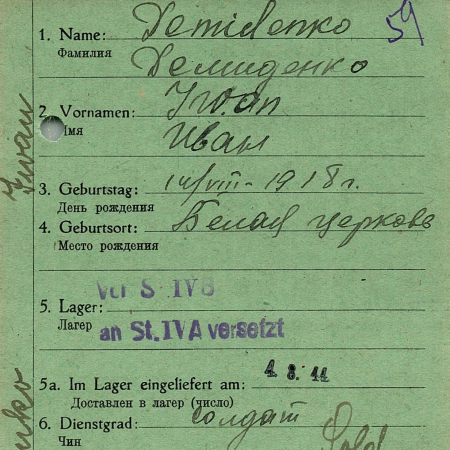 59
1. Name: Demidenko
Фамилия Демиденко
2. Vornamen: Iwan
Имя Иван
3. Geburtstag: 14/VIII - 1918 г.
День рождения
4. Geburtsort: Белая церковь
Место рождения
Von St. IVB
5. Lager:
Лагер an St. IVA versetzt
5a. Im Lager eingeliefert am: 4. 8. 44
Доставлен в лагер (число)
6. Dienstgrad: солдат
Чин Sold
Iwan